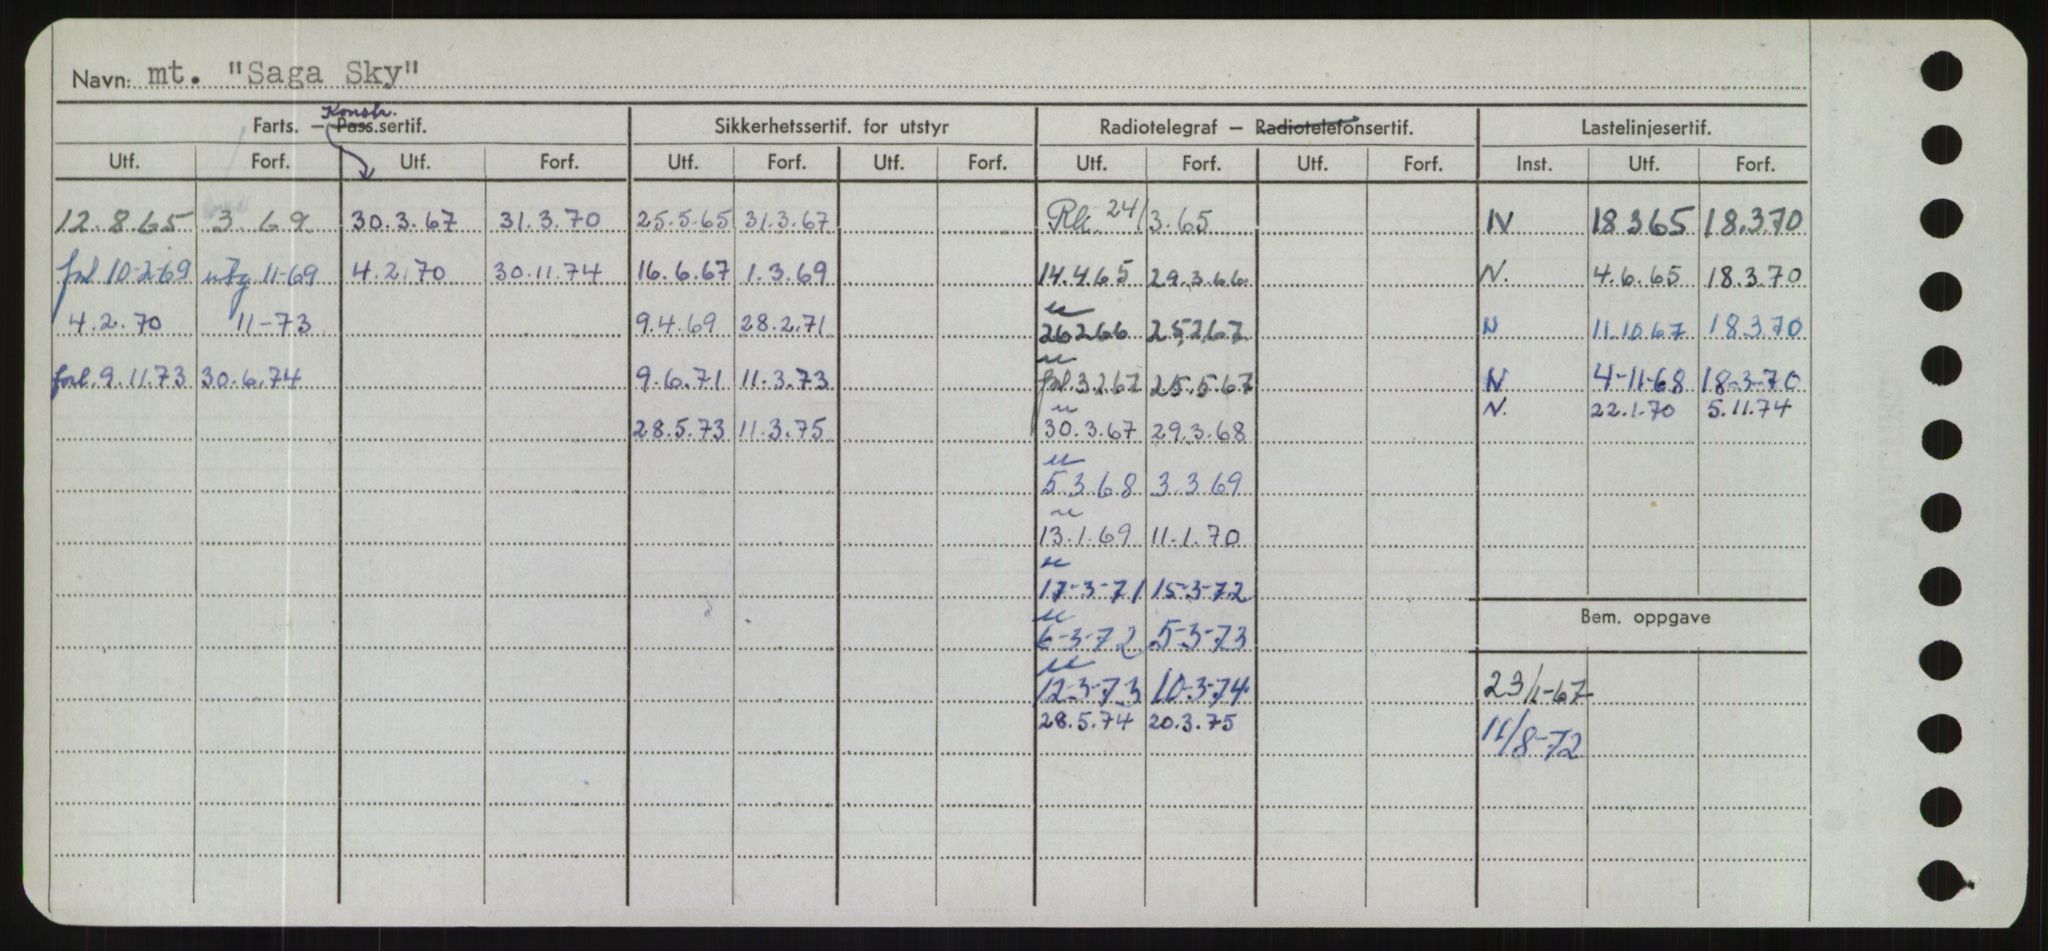 Navn: mt. "Saga Sky"
Konstr.
Farts. – Pass.sertif. Sikkerhetssertif. for utstyr Radiotelegraf – Radiotelefonsertif. Lastelinjesertif.
Utf. Forf. Utf. Forf. Utf. Forf. Utf. Forf. Utf. Forf. Utf. Forf. Inst. Utf. Forf.
12.8.65 3.69 30.3.67 31.3.70 25.5.65 31.3.67 24/3.65 N 18365 18.3.70
10-2-69 utg 11-69 4.2.70 30.11.74 16.6.67 1.3.69 14.4.65 29.3.66 N. 4.6.65 18.3.70
4.2.70 11-73 9.4.69 28.2.71 26266 25.2.67 N 11.10.67 18.3.70
forl. 9.11.73 30.6.74 9.6.71 11.3.73 3.2.67 25.5.67 N 4-11-68 18-3-70
N. 22.1.70 5.11.74
28.5.73 11.3.75 30.3.67 29.3.68
5.3.68 3.3.69
13.1.69 11.1.70
17-3-71 15-3-72
Bem. oppgave
6-3-72 5-3-73
12-3-73 10-3-74 23/1-67
28.5.74 20.3.75
11/8-72